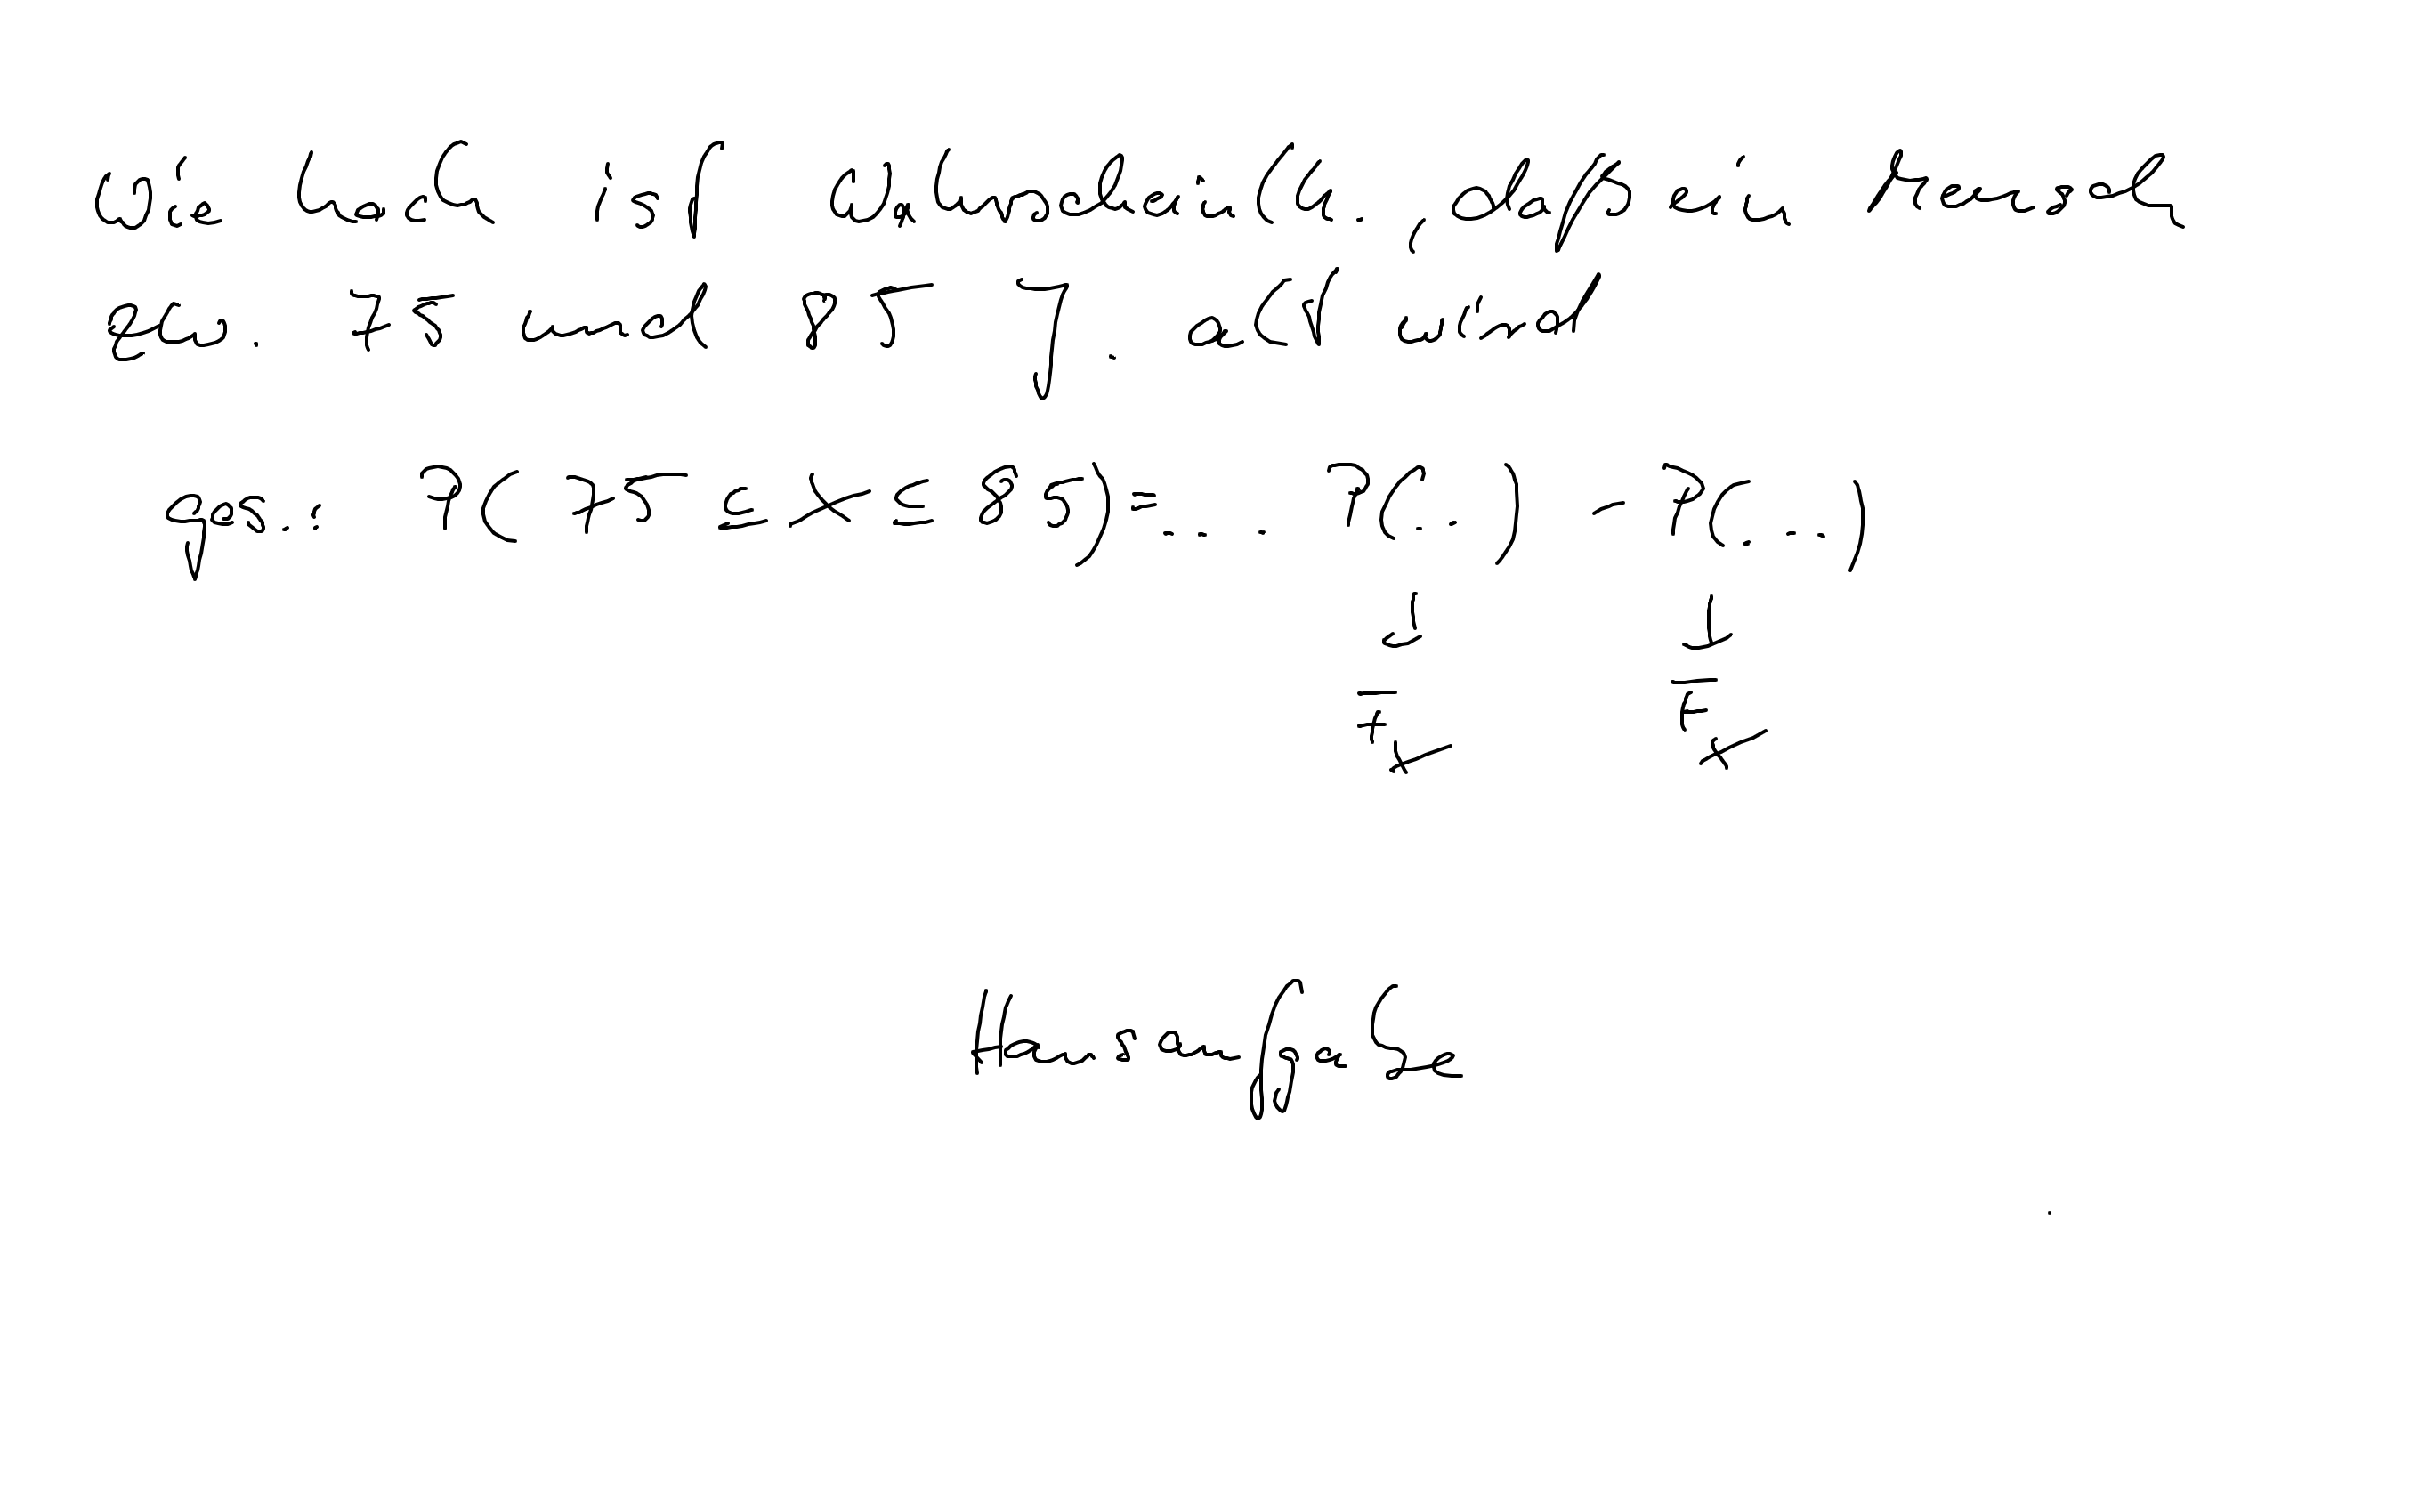 Wie hoch ist die Wahrscheinlichk., daß ein Mensch
zw. 75 und 85 J. alt wird
ges.: P(75 ≤ X ≤ 85) = .... P(..) - P(...)
↓ ↓
F_X F_X
Hausaufgabe